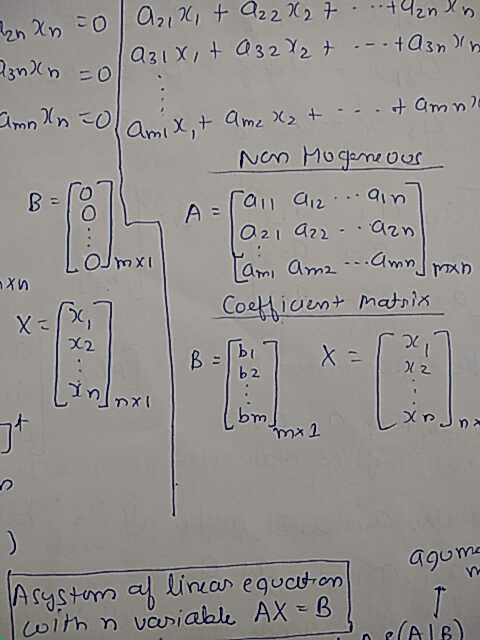 a2n xn = 0
a3n xn = 0
amn xn = 0
B = [0 0 ⋮ 0] m×1
×n
X = [x1 x2 ⋮ xn] n×1
]t
)
a21 x1 + a22 x2 + ... + a2n xn
a31 x1 + a32 x2 + ... + a3n xn
⋮
am1 x1 + am2 x2 + ... + amn x
Non Mogeneous
A = [a11 a12 ... a1n
a21 a22 .. a2n
⋮
am1 am2 ... amn] m×n
Coefficient matrix
B = [b1 b2 ⋮ bm] m×1 X = [x1 x2 ⋮ xn] n×
A system of linear equation
with n variable AX = B
agume
↑
(A|B)